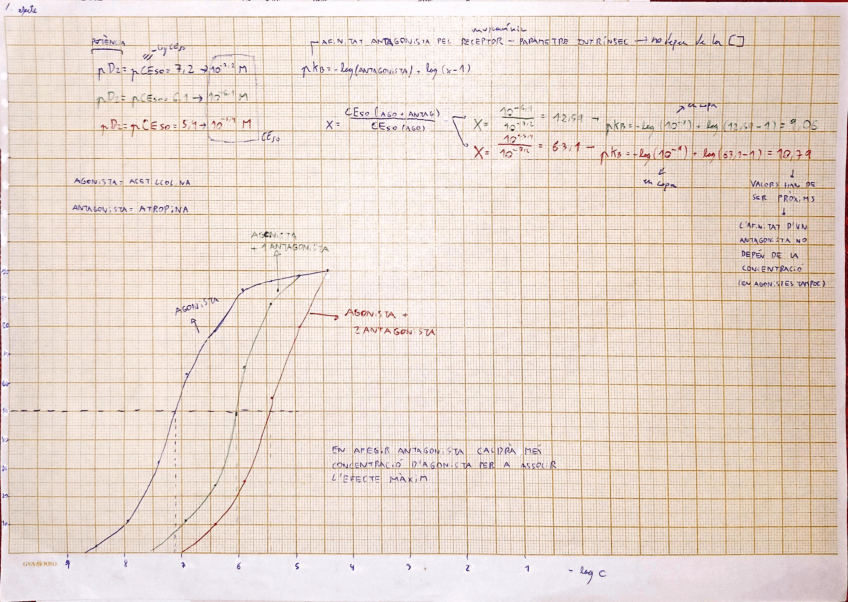 1. efecte
POTÈNCIA
-log CE50
pD2 = pCE50 = 7,2 → 10^-7,2 M
pD2 = pCE50 = 6,1 → 10^-6,1 M
pD2 = pCE50 = 5,4 → 10^-5,4 M
CE50
AFINITAT ANTAGONISTA PEL RECEPTOR - PARÀMETRE INTRÍNSEC → no depen de la []
pKB = -log(ANTAGONISTA) + log(x-1)
X = CE50 (AGO + ANTAG) / CE50 (AGO)
X = 10^-6,1 / 10^-7,2 = 12,59 - pKB = -log(10^-8) + log(12,59-1) = 9,06
X = 10^-5,4 / 10^-7,2 = 63,1 - pKB = -log(10^-9) + log(63,1-1) = 10,79
VALORS HAN DE
SER PRÒXIMS
L'AFINITAT D'UN
ANTAGONISTA NO
DEPÈN DE LA
CONCENTRACIÓ
(EN AGONISTES TAMPOC)
AGONISTA = ACETILCOLINA
ANTAGONISTA = ATROPINA
AGONISTA
+ 1 ANTAGONISTA
AGONISTA
AGONISTA +
2 ANTAGONISTA
EN AFEGIR ANTAGONISTA CALDRÀ MÉS
CONCENTRACIÓ D'AGONISTA PER A ASSOLIR
L'EFECTE MÀXIM
9 8 7 6 5 4 3 2 1 - log C